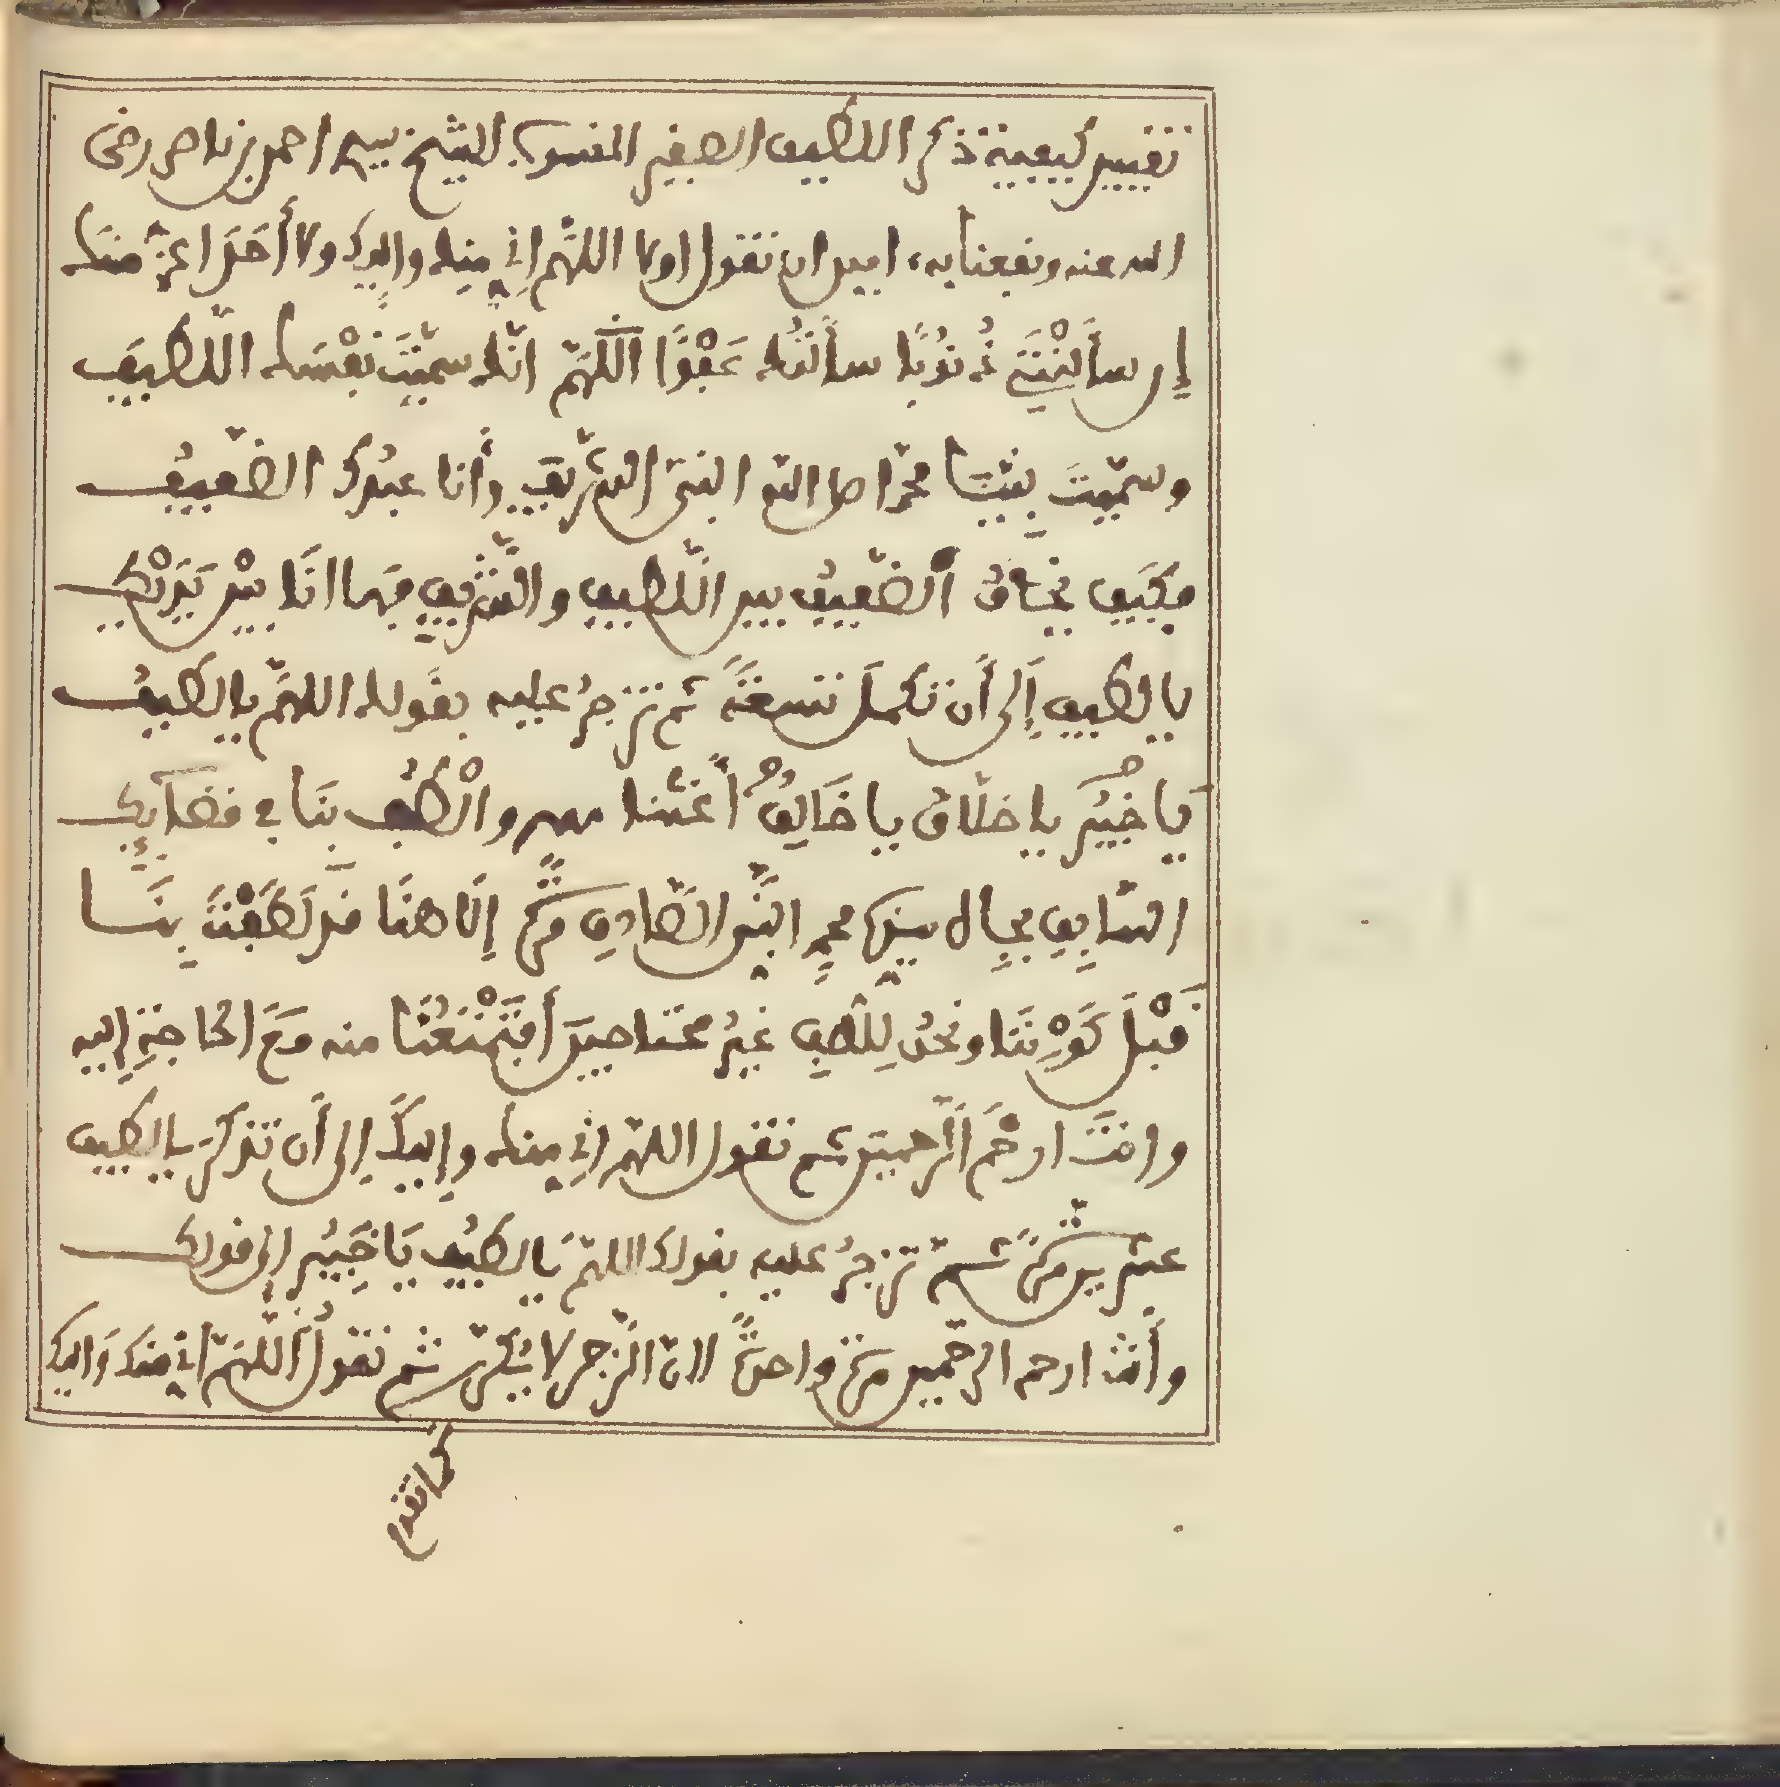 تقييد كيفية ذكر اللطيف الصغير المنسوب للشيخ سيد احمد بن ناصر رضي
الله عنه ونفعنا به، امين ان تقول اولا اللهم اني منك واليك ولا أحدَ اعزّ منك
إن سأَلْتَنِي ذُنُوبًا سأَلتُك عَفْوًا اللّهمّ انّك سمّيْتَ نَفْسَك اللّطيفَ
وسمّيتَ نبيّنَا محمّدا صلى الله النبيّ الشّريف وأنا عبدُك الضّعيفُ
فكيَف يخافُ الضّعيفُ بين اللّطيفِ والشّريفِ فهَا انَا بيْن يَدَيْك
يا لطيف إلى أن تكملَ تسعةً ثم تزجرُ عليه بقَولك اللهمّ يا لطيفُ
يَا خَبيُرَ يا خلّاقُ يا خَالِقُ أَغثنا والْطُف بنَا في قضآيِك
السّابِقِ بجاه سيدنا محمدٍ النّبيّ الصّادِقِ إلَاهنَا قدْ لَطَفْتَ بِنَا
قَبْلَ كَوْنِنَا ونحنُ لِلّطفِ غيرُ محتاجينَ أَفتَمْنَعُنَا منه مَعَ الحَاجَةِ إليه
وانتَ ارحَم الرّاحمينَ ثم تقول اللهمّ اني منك وإليكَ إلى أَن تذكرَ يا لطيف
عشرين مرّةً ثمّ تزجرُ عليه بقولك اللهمّ يَا لطيُف يَا خَبيُر إلى قولك
وأَنت ارحم الراحمين مرّة واحدةً لانّ الزّجر لا يُكرّر ثم تقولُ اللّهمّ انّي منك وَاليك
كما تقدم